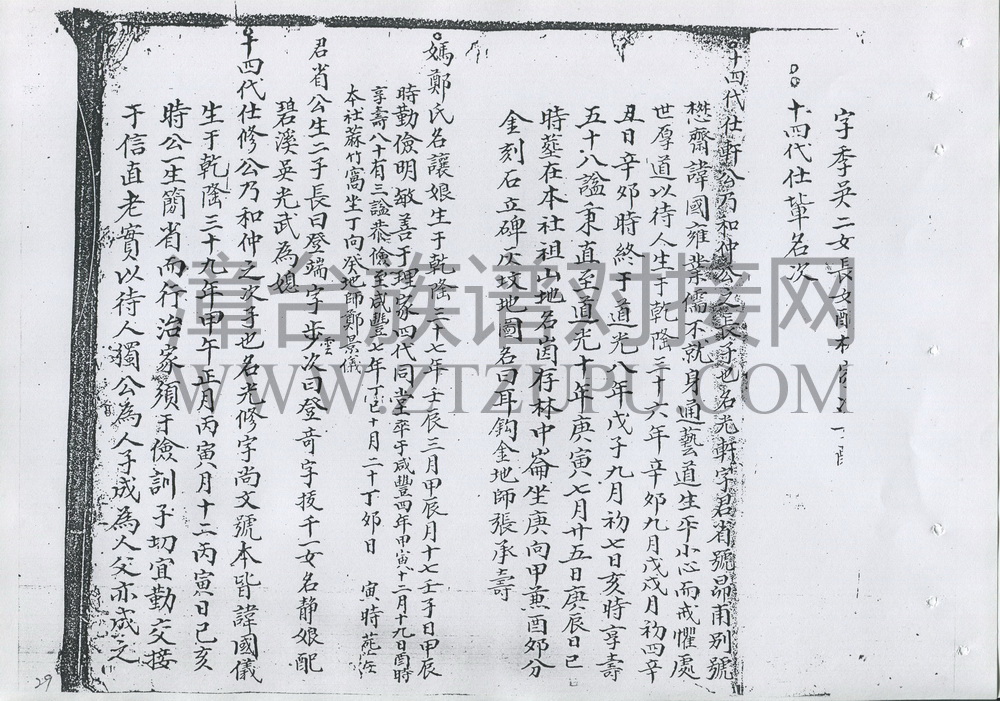 字季英二女長女酉
十四代仕輩名次
十四代仕軒公乃和仲公之長子也名光軒字君省號昴甫別號
懋齋諱國雍業儒不就身通藝道生平小心而戒懼處
世厚道以待人生于乾隆三十六年辛卯九月戊戌月初四辛
丑日辛卯時終于道光八年戊子九月初七日亥時享壽
五十八謚秉直至道光十年庚寅七月廿五日庚辰日巳
時塟在本社祖山地名崮存林中崙坐庚向甲兼酉卯分
金刻石立碑灰坟地圖名曰耳鈎金地師張承壽
媽鄭氏名讓娘生于乾隆三十七年壬辰三月甲辰月十七壬子日甲辰
時勤儉明敏善于理家四代同堂卒于咸豐四年甲寅十二月十九日酉時
享壽八十有三謚恭儉至咸豐七年丁巳十月二十丁卯日 寅時塟在
本社蔴竹窩坐丁向癸地師鄭景儀
君省公生二子長曰登端字步雲次曰登奇字拔千一女名静娘配
碧溪吳光武為媳
十四代仕修公乃和仲之次子也名光修字尚文號本皆諱國儀
生于乾隆三十九年甲午正月丙寅月十二丙寅日己亥
時公一生簡省而行治家須于儉訓子切宜勤交接
于信直老實以待人獨公為人子成為人父亦成之
29
漳台族谱对接网
WWW.ZTZUPU.COM